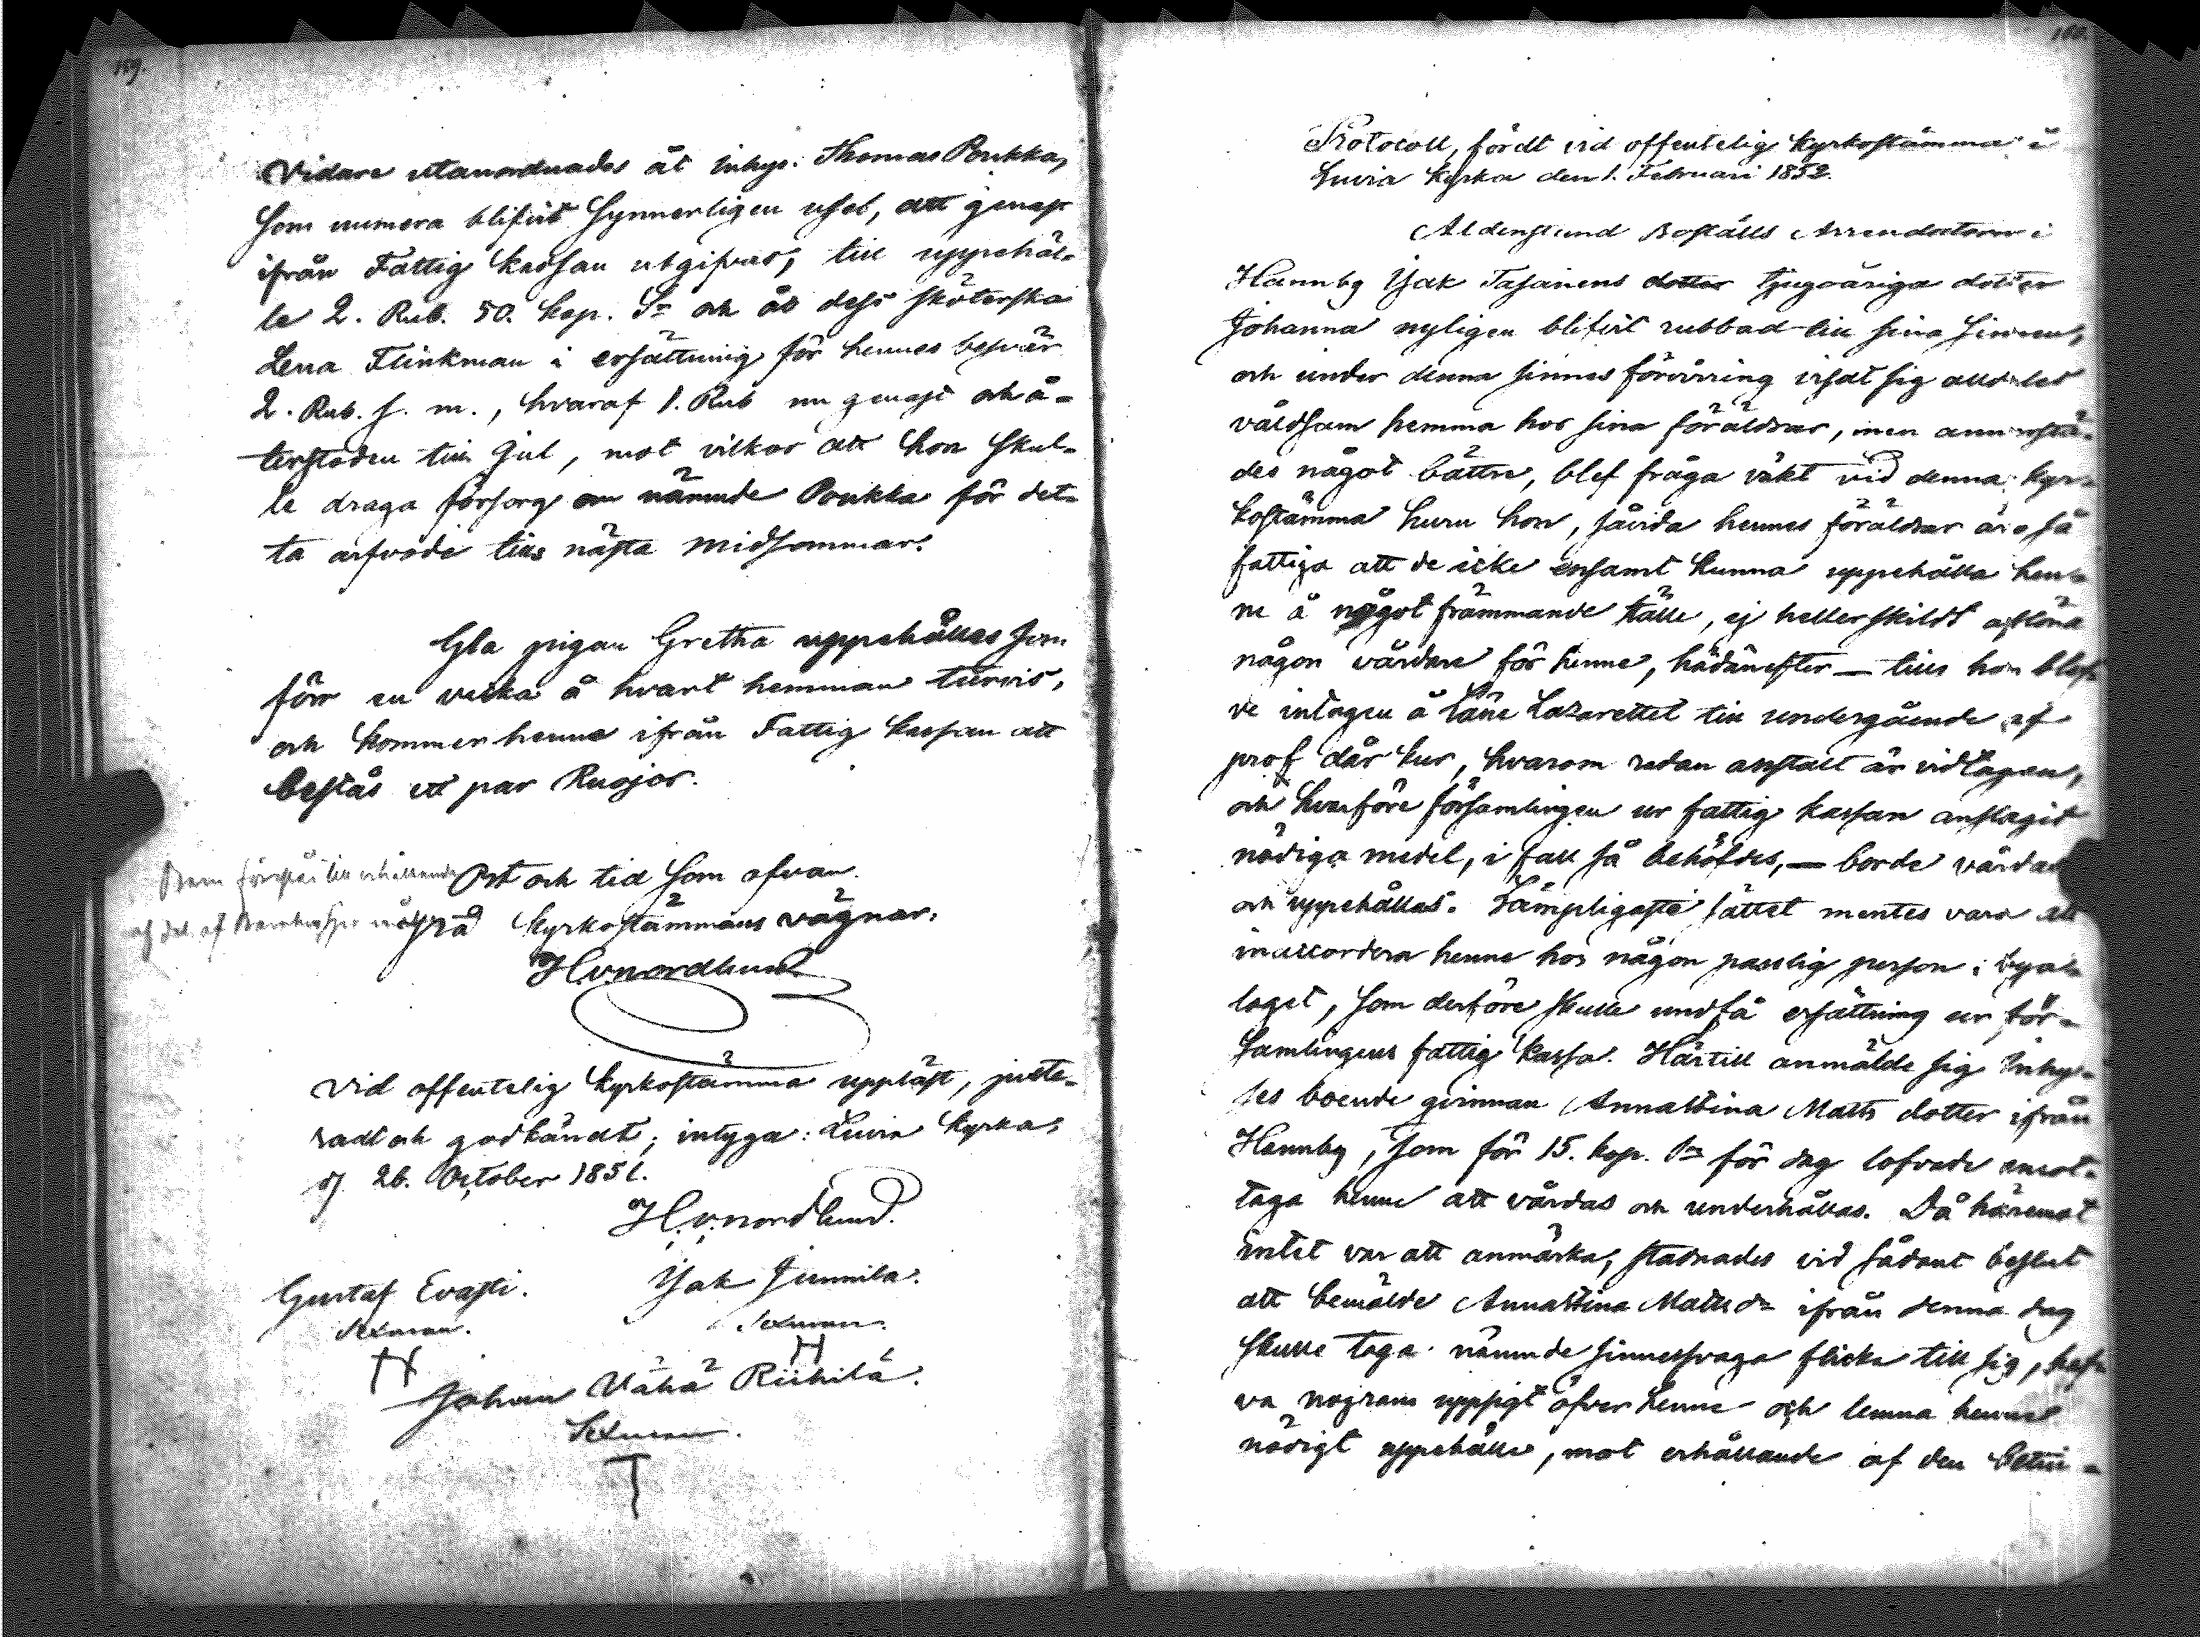 159.
Vidare utanordnades åt inhys. Thomas Poukka,
som numera blifvit synnerligen usel, att genast
ifrån Fattig kassan utgifvas, till uppehäl-
le 2. Rub. 50. kop. Sr och åt dess sköterska
Lena Flinkman i ersättning för hennes besvär
2. Rub. s. m., hvaraf 1. Rub nu genast och å-
terstoden till Jul, mot vilkor att hon skul-
le draga försorg om nämnde Poukka för det-
ta arfvode tills nästa midsommar.
Gla pigan Gretha uppehålles som
förr en vecka å hvart hemman turvis,
och kommer henne ifrån Fattig kassan att
bestås ett par Ruojor.
Ort och tid som ofvan.
På kyrkostämmans vägnar,
H. v. nordlund
Vid offentelig kyrkostämma uppläst, juste-
radt och godkändt; intyga: Luvia kyrka,
d 26. October 1851.
H. v. nordlund.
Gustaf Evasti. Isak Junnila.
Sexman. Sexman.
Johan Vähä Riihilä.
Sexman.
160.
Protocoll, fördt vid offentelig kyrkostämma i
Luvia kyrka den 1. Februari 1852.
Boställs Arrendatorn i
Hannby Isak Tasanens dotter tjugoåriga dotter
Johanna nyligen blifvit rubbad till sina sinnen,
och under denna sinnes förvirring visat sig alldeles
våldsam hemma hos sina föräldrar, men annorstä-
des något bättre, blef fråga väkt vid denna kyr-
kostämma huru hon, såvida hennes föräldrar äro så
fattiga att de icke ensamt kunna uppehålla hen-
ne å något främmande ställe, ej heller skildt aflöna
någon vårdare för henne, hädanefter — tills hon blef-
ve intagen å Läne Lazarettet till undergående af
prof dår kur, hvarom redan anstalt är vidtagen,
och hvarföre församlingen ur fattig kassan anslagit
nödiga medel, i fall så behöfdes, — borde vårdas
och uppehållas. Lämpligaste sättet mentes vara att
inaccordera henne hos någon passlig person i bya-
laget, som derföre skulle undfå ersättning ur för-
samlingens fattig kassa. Härtill anmälde sig Inhy-
ses boende qvinnan Annastina Matts dotter ifrån
Hannby, som för 15. kop. Sr för dag lofvade emot-
taga henne att vårdas och underhållas. Då häremot
intet var att anmärka, stadnades vid sådant beslut
att bemälde Annastina Matts dr ifrån denna dag
skulle taga nämnde sinnessvaga flicka till sig, haf-
va nogran uppsigt öfver henne och lemna henne
nödigt uppehälle, mot erhållande af den beting-